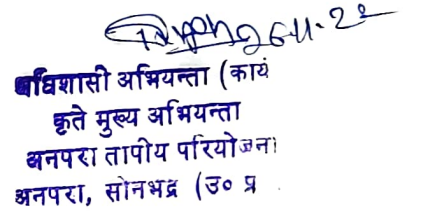 26-11-22
अधिशासी अभियन्ता (कार्य
कृते मुख्य अभियन्ता
अनपरा तापीय परियोजना
अनपरा, सोनभद्र (उ० प्र